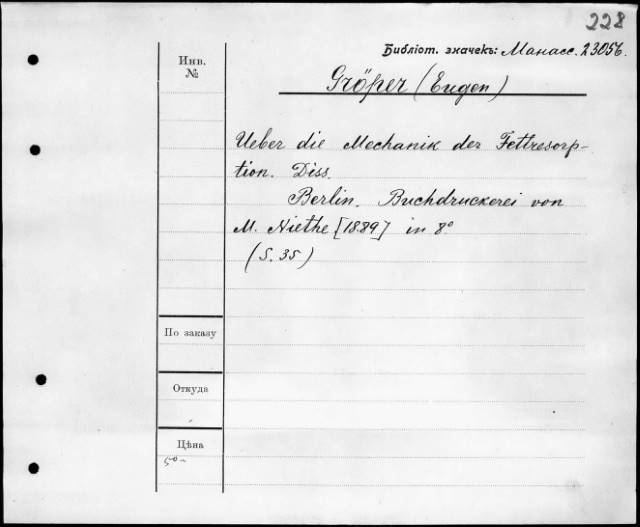 228
Библіот. значекъ: Манасс. 23056.
Инв.
№
Gröper (Eugen)
Ueber die Mechanik der Fettresorp-
tion. Diss.
Berlin. Buchdruckerei von
M. Niethe [1889] in 8°
(S. 35)
По заказу
Откуда
Цѣна
50-